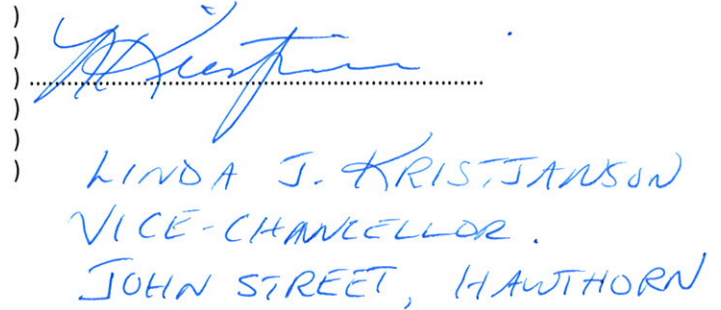 LINDA J. KRISTJANSON
VICE-CHANCELLOR.
JOHN STREET, HAWTHORN